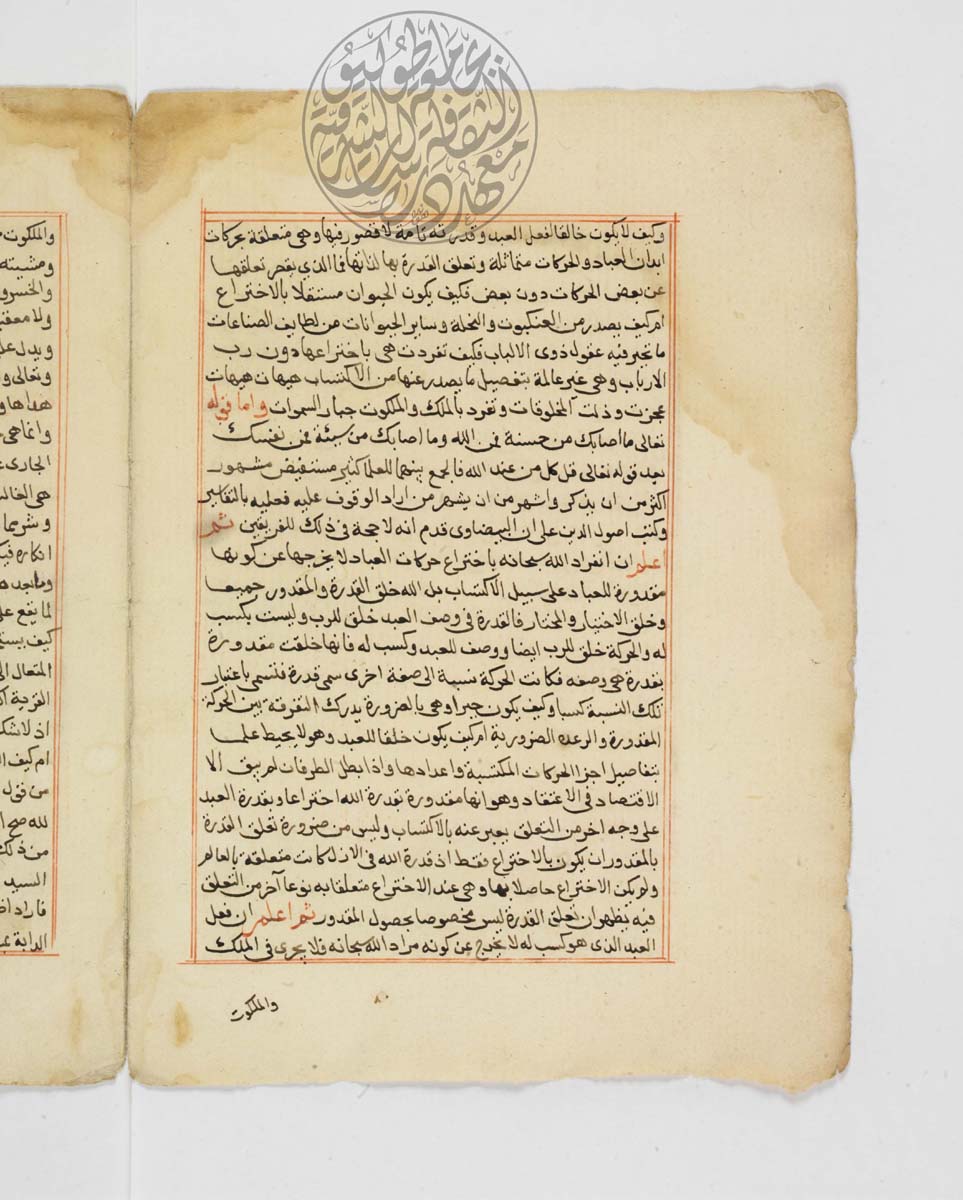 وكيف لا يكون خالقا لفعل العبد وقدرته تامة لا قصور فيها وهي متعلقة بحركات
ابدان العباد والحركات متماثلة وتعلق القدرة بها لذاتها فما الذي يقصر تعلقها
عن بعض الحركات دون بعض فكيف يكون الحيوان مستقلا بالاختراع
ام كيف يصدر من العنكبوت والنحلة وساير الحيوانات من لطايف الصناعات
ما تتحير فيه عقول ذوى الالباب فكيف تفردت هي باختراعها دون رب
الارباب وهي غير عالمة بتفصيل ما يصدر عنها من الاكتساب هيهات هيهات
عجزت وذلت المخلوقات وتفرد بالملك والملكوت جبار السموات واما قوله
تعالى ما اصابك من حسنة فمن الله وما اصابك من سيئة فمن نفسك
بعد قوله تعالى قل كل من عند الله فالجمع بينهما للعلما كثير مستفيض مشهور
اكثر من ان يذكر واشهر من ان يشهر من اراد الوقوف عليه فعليه بالتفاسير
وكتب اصول الدين على ان البيضاوى قدم انه لا حجة في ذلك للفريقين ثم
اعلم ان انفراد الله سبحانه باختراع حركات العباد لا يخرجها عن كونها
مقدورة للعباد على سبيل الاكتساب بل الله خلق القدرة والمقدور جميعا
وخلق الاختيار والمختار فالقدرة في وصف العبد خلق للرب وليست بكسب
له والحركة خلق للرب ايضا ووصف للعبد وكسب له فانها خلقت مقدورة
بقدرة هي وصفه فكانت الحركة نسبة الى صفة اخرى سمى قدرة فتسمى باعتبار
تلك النسبة كسبا وكيف يكون جبرا وهي بالضرورة يدرك التفرقة بين الحركة
المقدورة والرعده الضرورية ام كيف يكون خلقا للعبد وهو لا يحيط علما
بتفاصيل اجزا الحركات المكتسبة واعدادها واذا بطل الطرفان لم يبق الا
الاقتصاد في الاعتقاد وهو انها مقدورة بقدرة الله اختراعا وبقدرة العبد
على وجه اخر من التعلق يعبر عنه بالاكتساب وليس من ضرورة تعلق القدرة
بالمقدور ان يكون بالاختراع فقط اذ قدرة الله في الازل كانت متعلقة بالعالم
ولم يكن الاختراع حاصلا بها وهي عند الاختراع متعلقا به نوعا آخر من التعلق
فيه يظهر ان تعلق القدرة ليس مخصوصا بحصول المقدور ثم اعلم ان فعل
العبد الذى هو كسب له لا يخرج عن كونه مراد الله سبحانه فلا يجرى في الملك
والملكوت
والملكوت
ومشيته
ولا معقب
ويدل على
وتعالى و
هداها و
الجارى
هى الغالب
وشريها
انكاره فيك
لما يقع على
المتعال
القرية
اذ لا شك
ام كيف
من قول
من ذلك
السيد
فاراد
الدابة